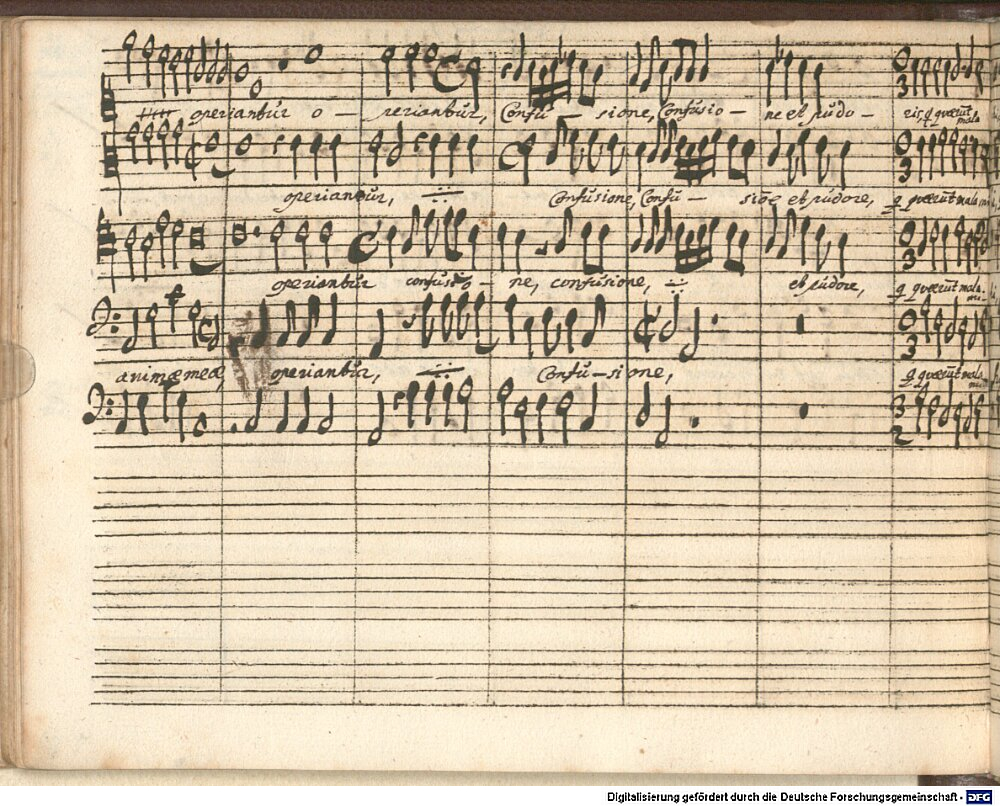 operiantur o - periantur, Confu - sione, Confusio - ne et pudo - ris, q quærūt mala
operiantur, Confusione, Confu - siōe et pudore, q quærūt mala
operiantur confusio - ne, confusione, et pudore, q quærūt mala
animæ meæ operiantur, Confu - sione, q quærūt mala
Digitalisierung gefördert durch die Deutsche Forschungsgemeinschaft - DFG